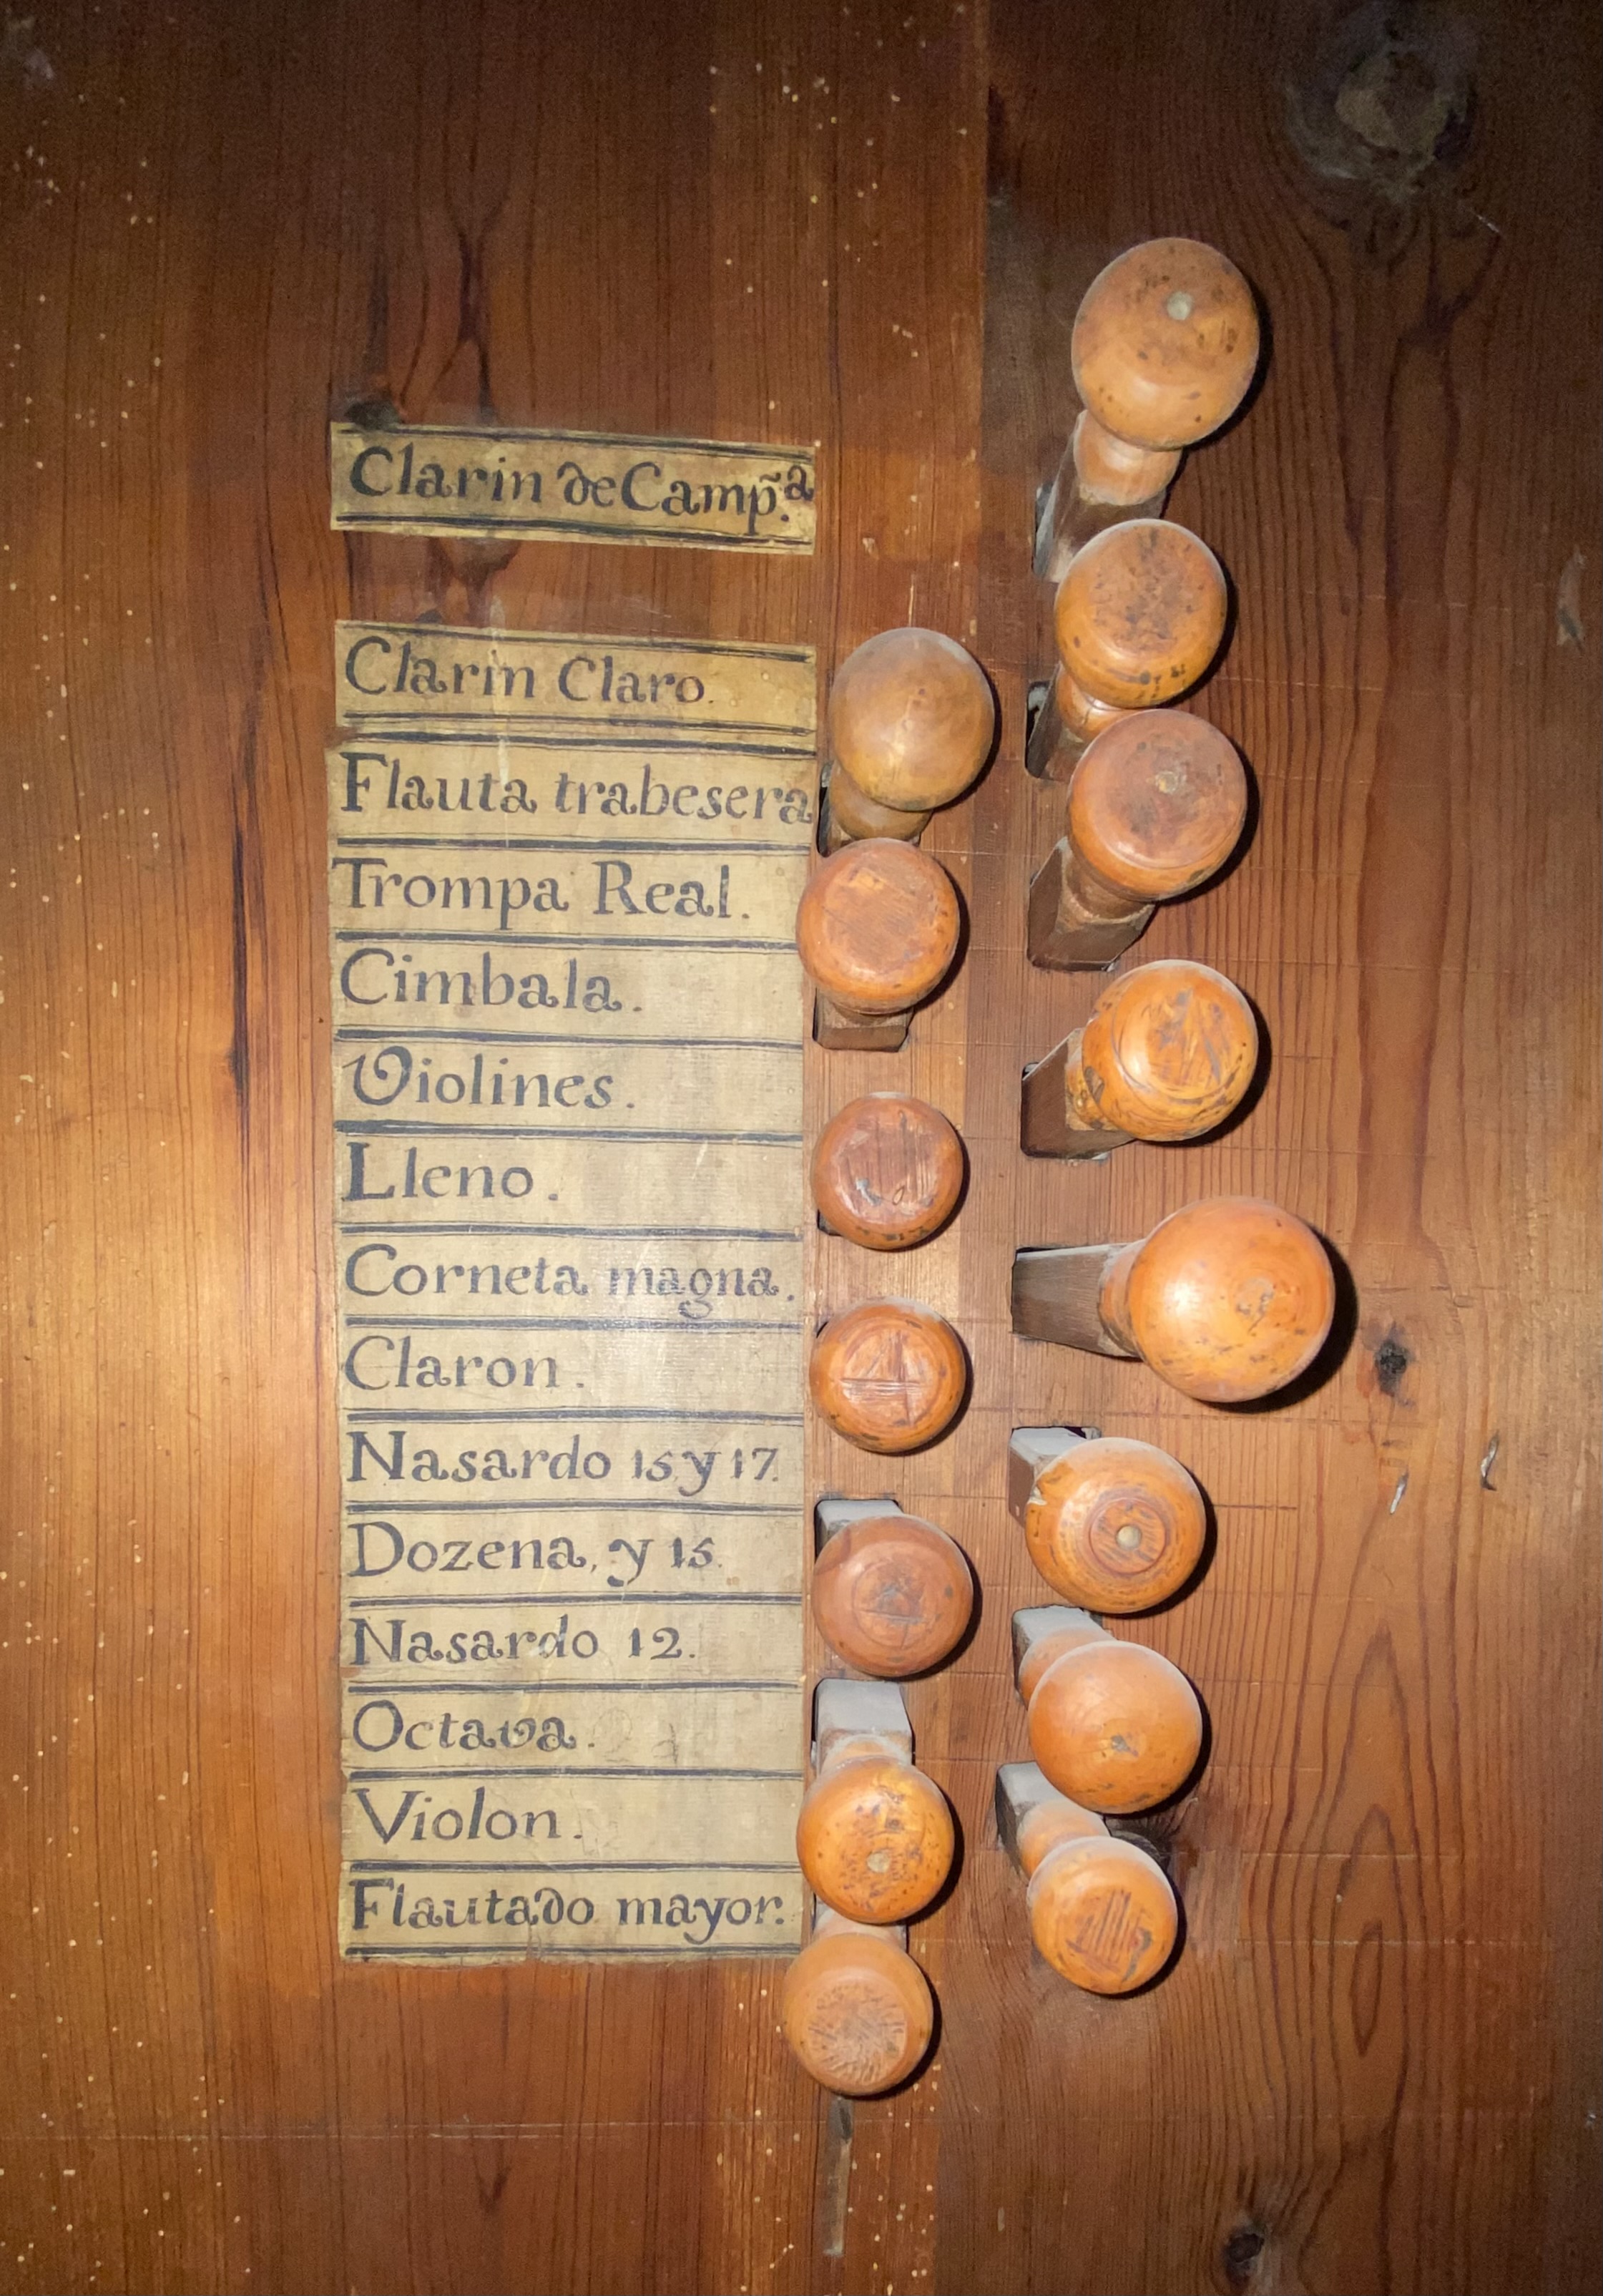 Clarin de Camp̃.ª
Clarin Claro.
Flauta trabesera
Trompa Real.
Cimbala.
Violines.
Lleno.
Corneta magna.
Claron.
Nasardo 15 y 17.
Dozena, y 15.
Nasardo 12.
Octava.
Violon.
Flautado mayor.